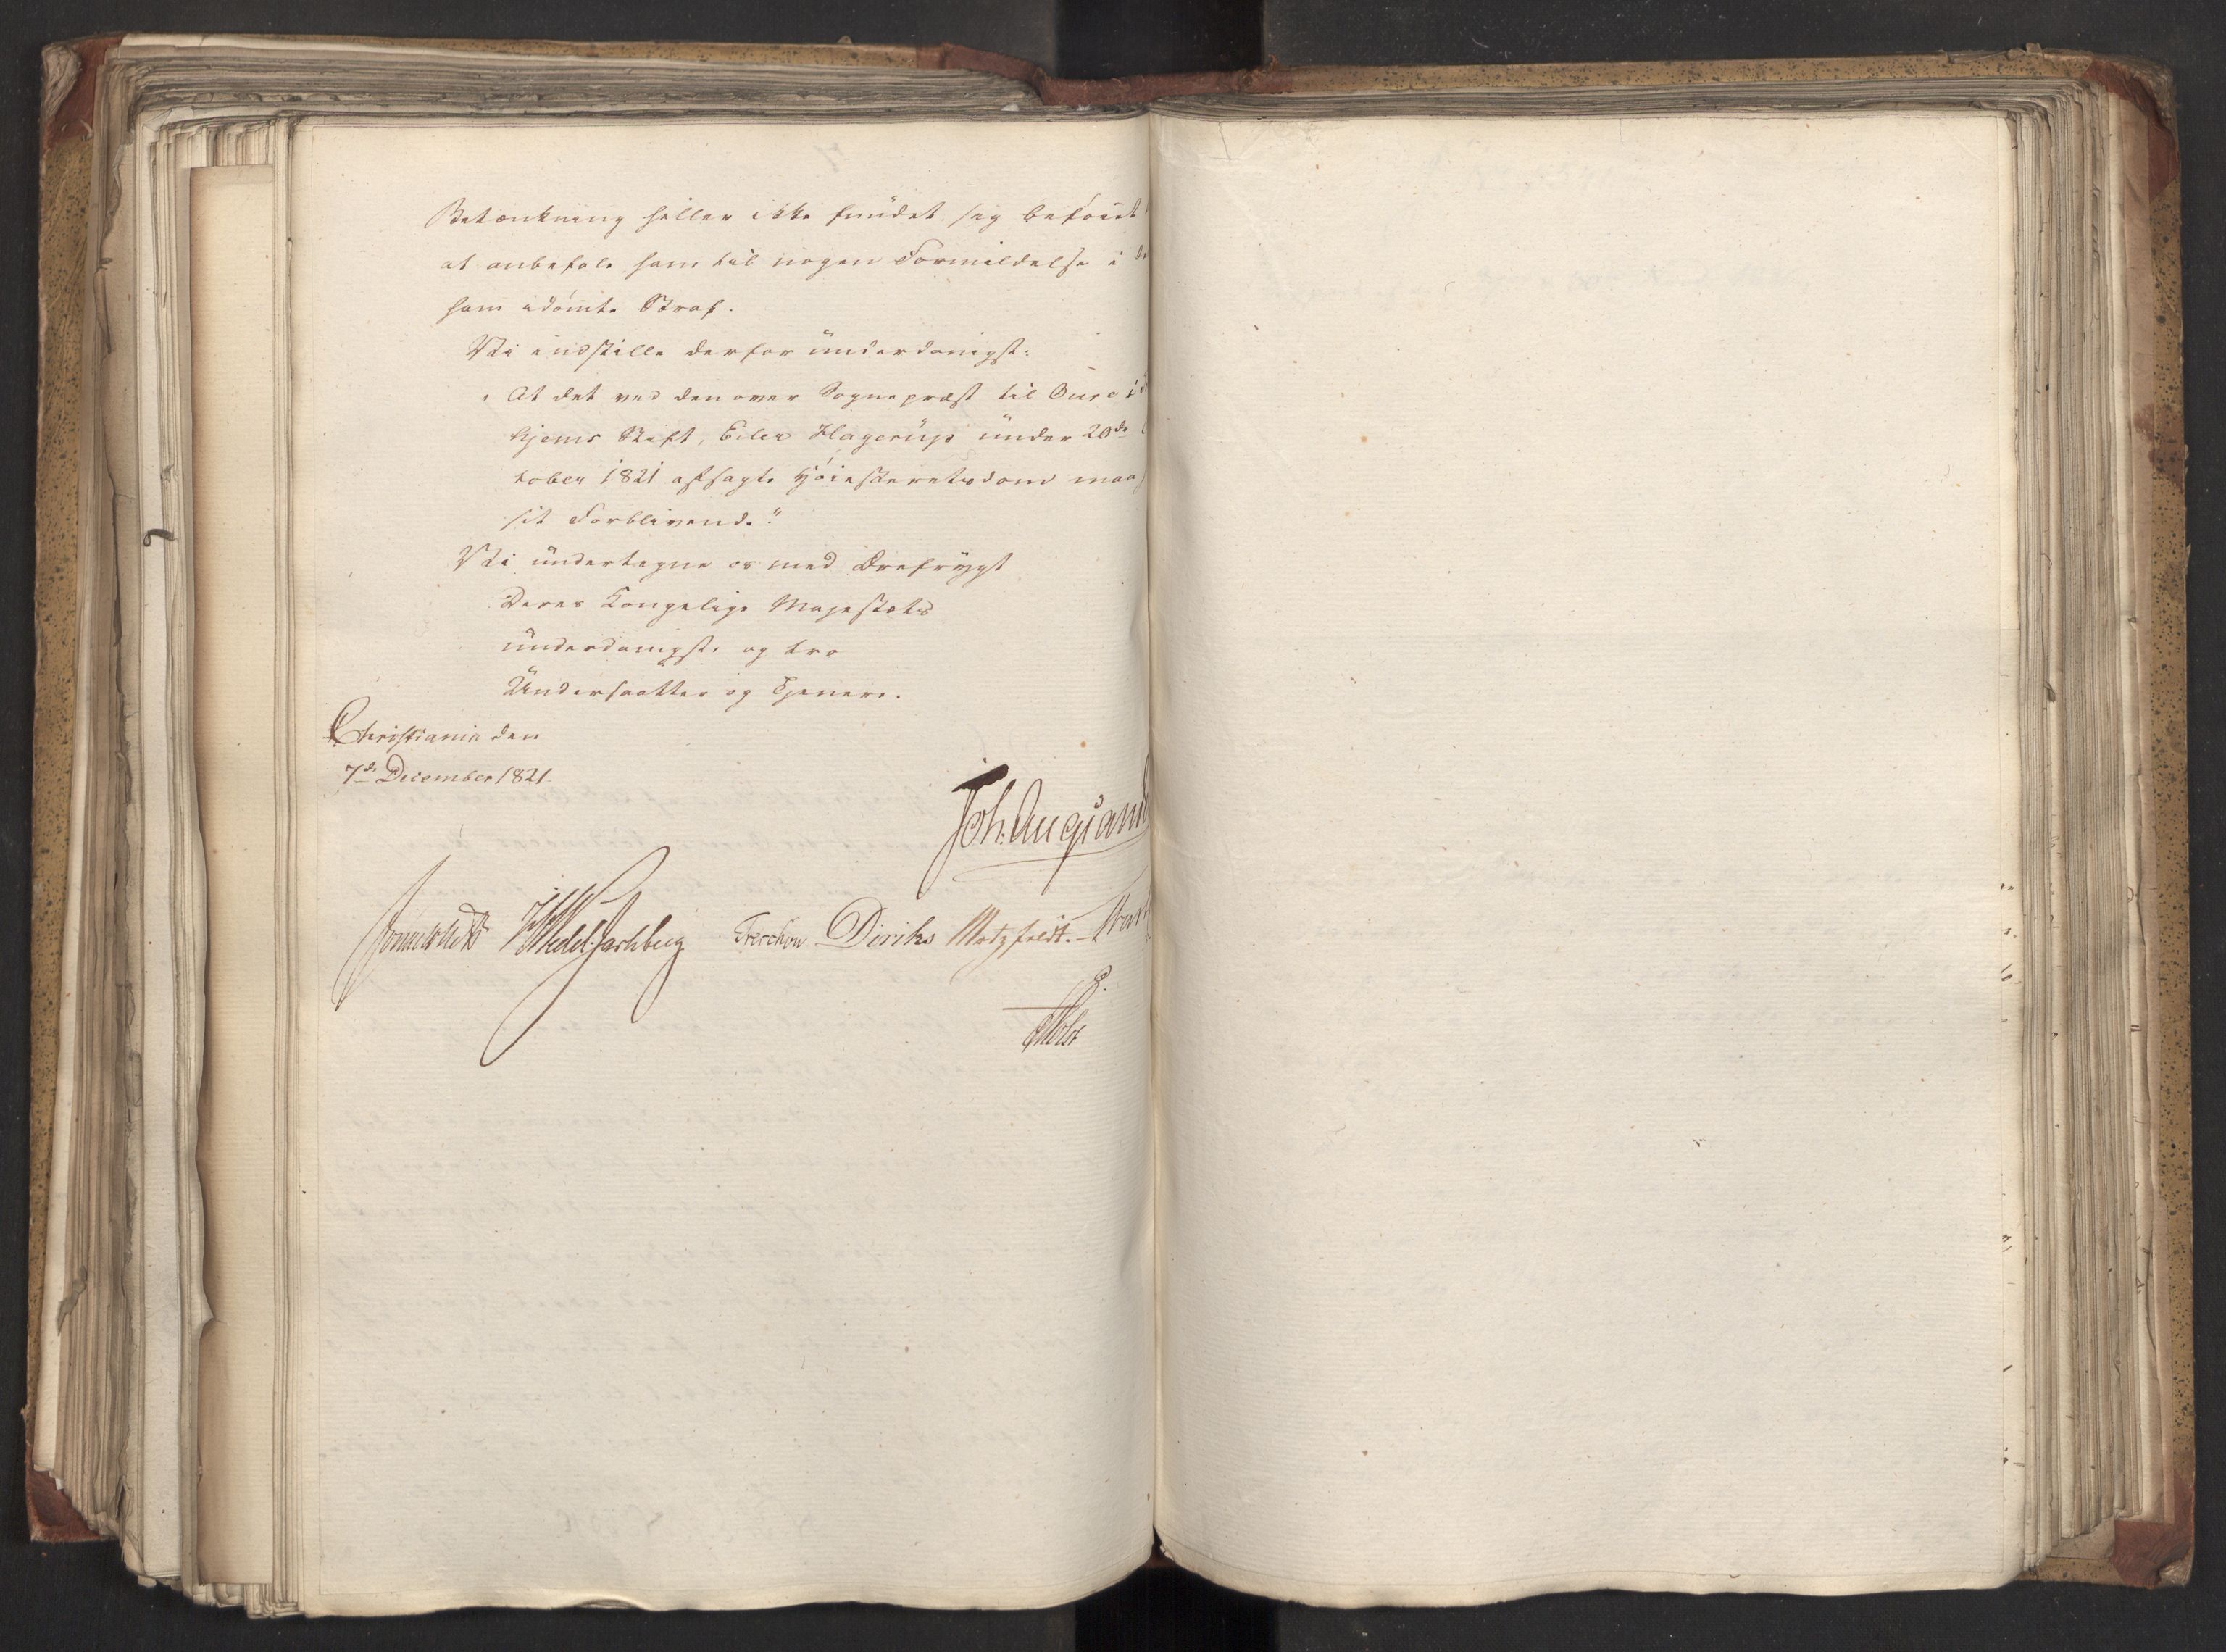 Betænkning heller ikke fundet sig beføiet
at anbefale ham til nogen Formildelse i
ham idømte Straf.
Vi indstille derfor underdanigst:
"At det ved den over Sognepræst til
hjems Stift, Eiler Hagerup under 20de
tober 1821 afsagte Høiesteretsdom maa
sit Forblivende."
Vi undertegne os med Ærefrygt
Deres Kongelige Majestæts
underdanigste og tro
Undersaatter og Tjenere.
Christiania den
7de December 1821.
Joh: Aug: Sand
Sommerhielm HWedel Jarlsberg Treschow Diriks Motzfeldt. Kras
Holst